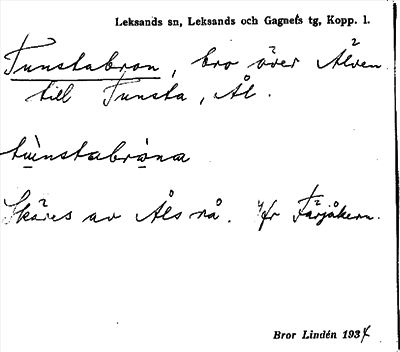 Leksands sn, Leksands och Gagnefs tg, Kopp. l.
Tunstabron, bro över Älven
till Tunsta, Ål.
tùnstabròna
Skäres av Åls rå. Jfr Färjåkern.
Bror Lindén 1934